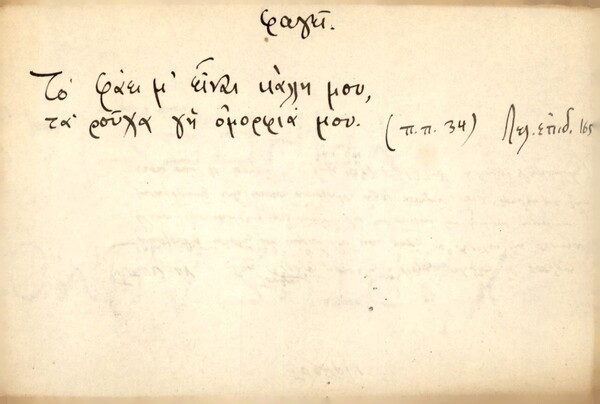 φαγεῖ.
Τὸ φάει μ' εἶναι κάλλη μου,
τὰ ροῦχα γῆ ὀμορφιά μου. (π.π. 34) Λελ. ἐπιδ. 165